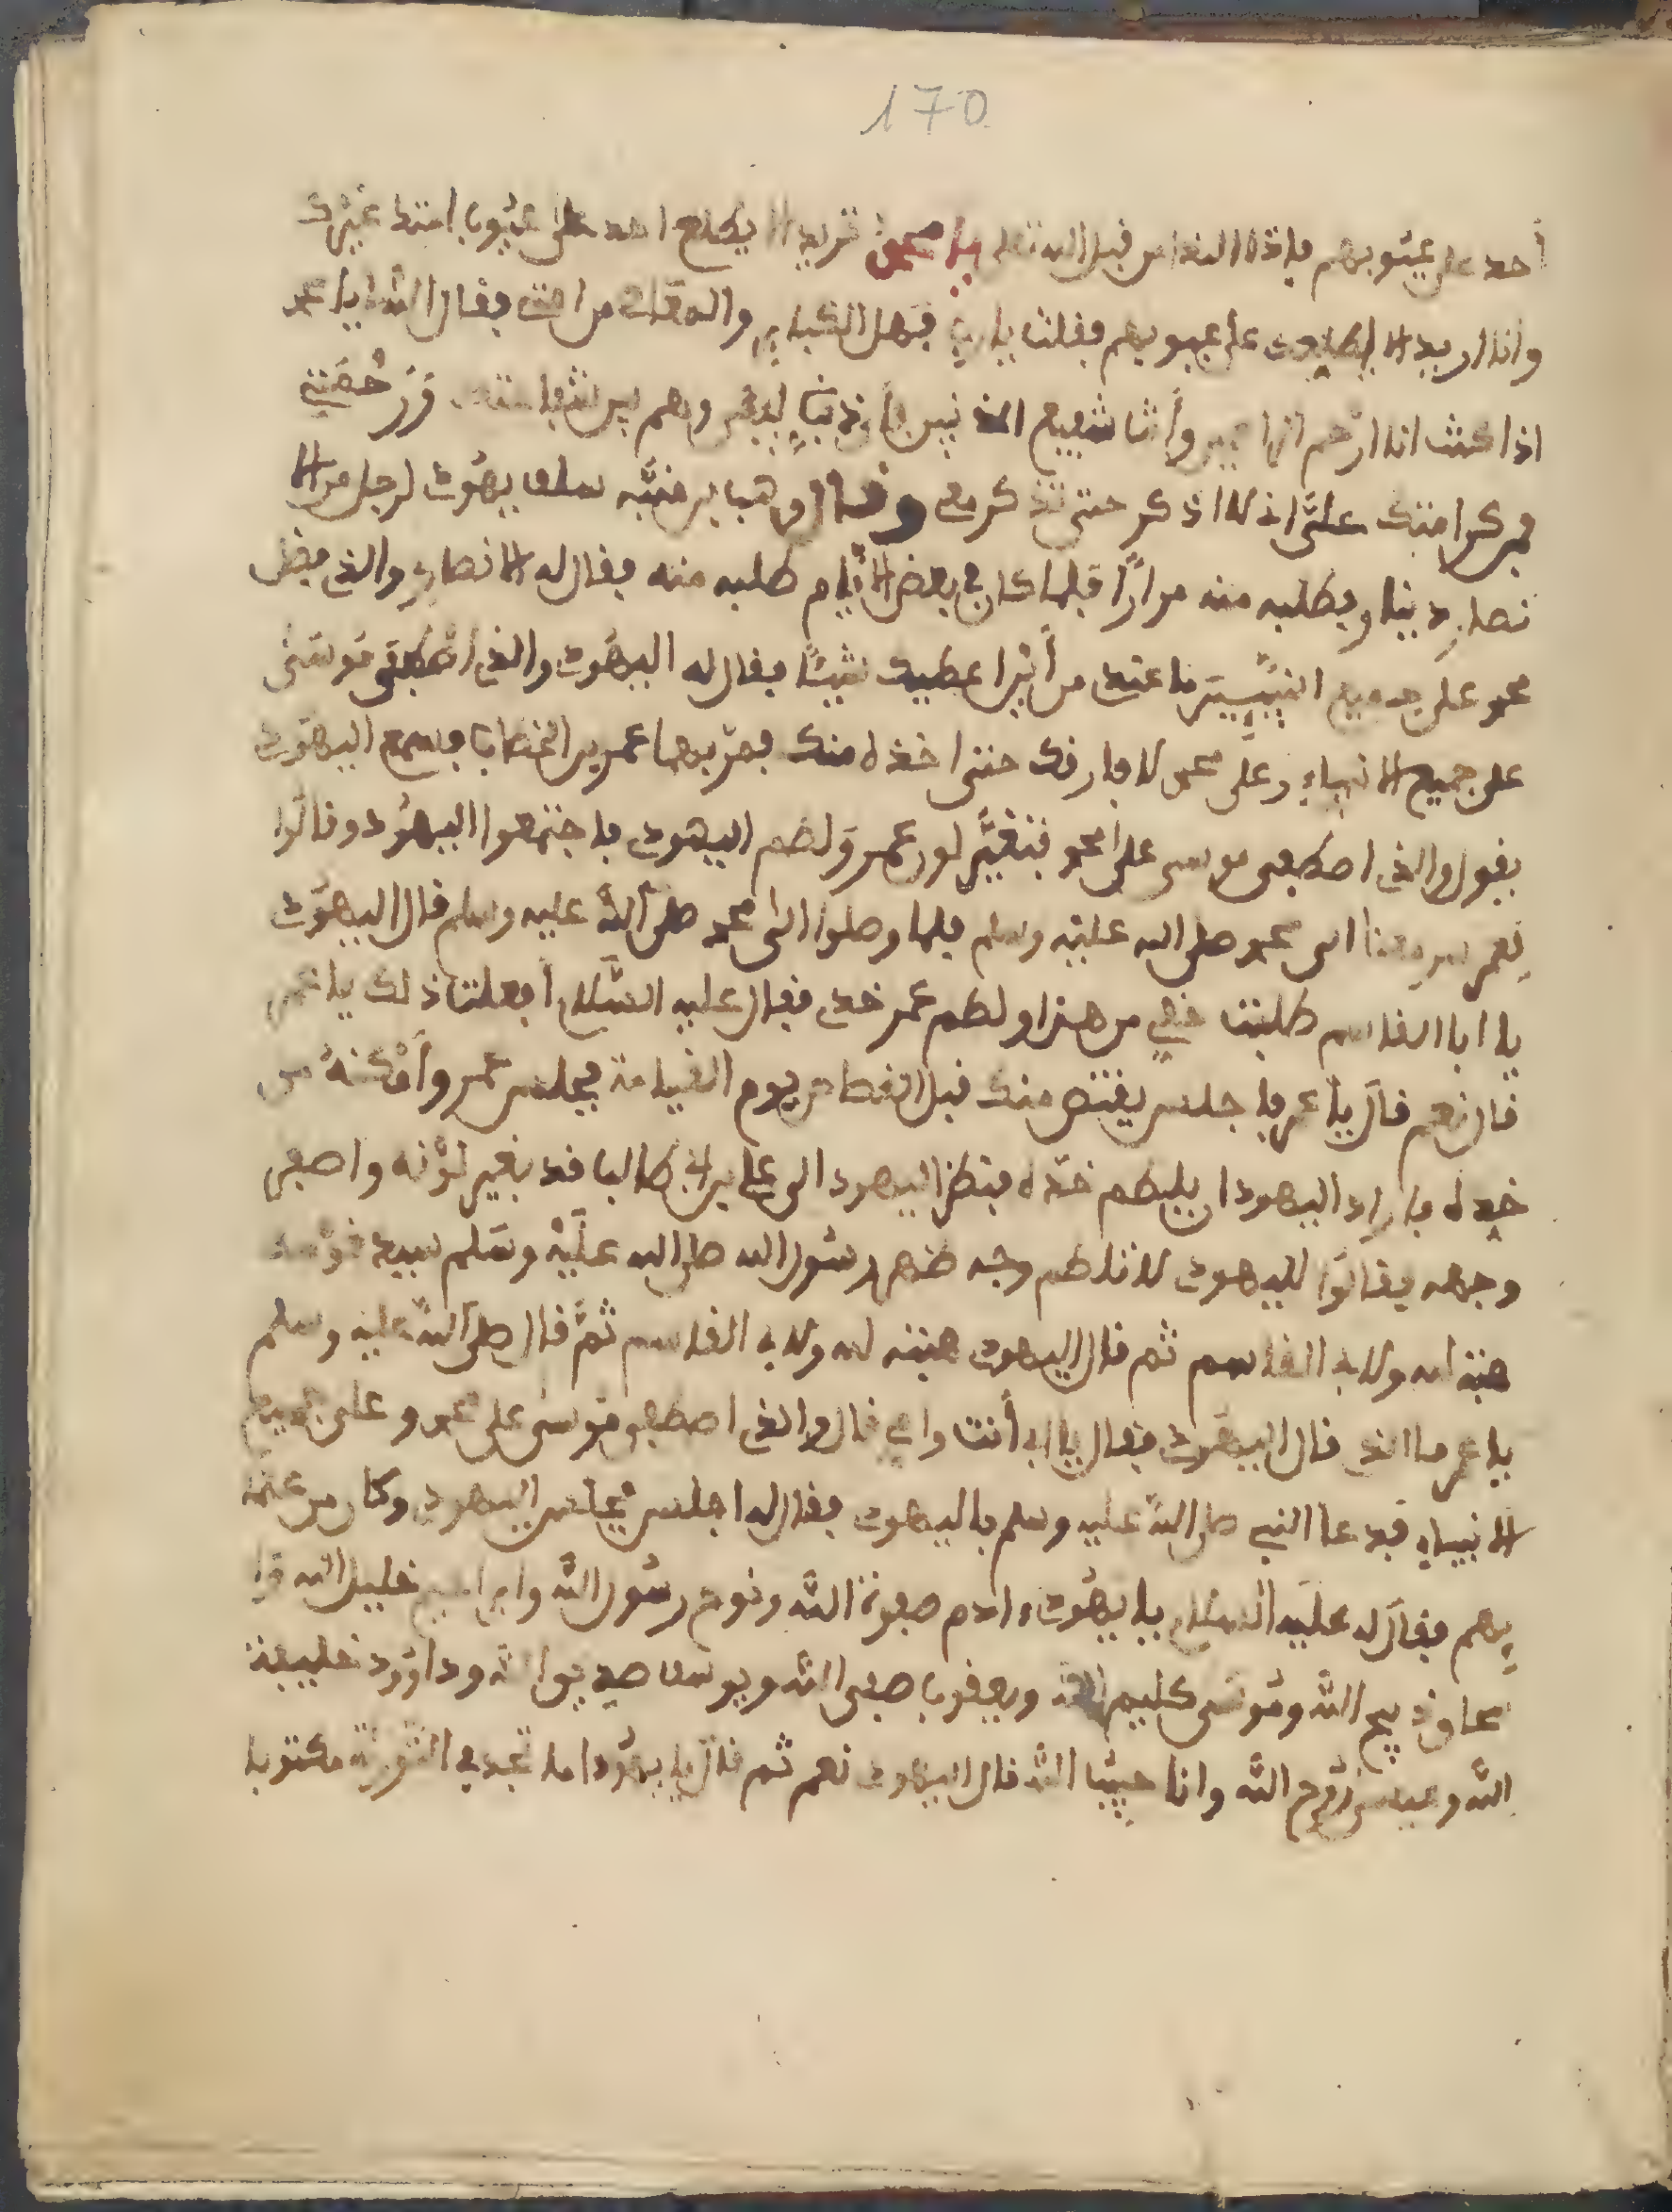 170
أحد على عيوبهم فإذا النداء من قبل الله تعلى يا محمد تريد الا يطلع احد على عيوب امتك غيرك
وانا اريد الا يطلع على عيوبهم فقلت يا رب فهل الكبائر من امتى فقال الله يا محمد
اذا كنت انا ارحم الراحمين وأنت شفيع المذنبين فأي ذنب يبقى وهم بين
من كرامتك على اني لا اذكر حتى تذكر معي وقال وهب بن منبه سلف يهودي لرجل من الا
نصار دينارا يطلبه منه مرارًا فلما كان في بعض الأيام طلبه منه فقال له الانصاري والذي فضل
محمد على جميع النبيين ما عندي من أين اعطيك شيئًا فقال له اليهودي والذي اصطفى موسى
على جميع الانبياء وعلى محمد لا فارقك حتى اخذه منك فمر بهما عمر بن الخطاب فسمع اليهودي
يقول والذي اصطفى موسى على محمد فتغيَّر لون عمر ولطم اليهودي فاجتمعوا اليهود وقالوا
نعم سر معنا الى محمد صلى الله عليه وسلم فلما وصلوا الى محمد صلى الله عليه وسلم قال اليهودي
يا ابا القاسم طلبت حقي من هذا ولطم عمر خدي فقال عليه السلام أفعلت ذلك يا عمر
قال نعم قال يا عمر فاجلس يقتص منك قبل القصاص يوم القيامة فجلس عمر وأمكنه من
خده فاراد اليهود ان يلطم خده فنظر اليهود الى علي بن ابي طالب قد تغير لونه واصفر
وجهه فقالوا لليهودي لا تلطم وجه صهر رسول الله صلى الله عليه وسلم سيد قومه
هبته لله ولابي القاسم ثم قال اليهودي هبته لله ولابي القاسم ثمَّ قال صلى الله عليه وسلم
يا عمر ما الذي قال اليهودي فقال بابي أنت وامي قال والذي اصطفى موسى على محمد وعلى جميع
الانبياء فدعا النبي صلى الله عليه وسلم باليهودي فقال له اجلس فجلس اليهودي وكان من
فقال له عليه السلام يا يهودي ءادم صفوة الله ونوح رسول الله وابراهيم خليل الله و
اسحاق ذبيح الله وموسى كليم الله ويعقوب صفي الله ويوسف صديق الله وداوود خليفة
الله وعيسى روح الله وانا حبيب الله قال اليهودي نعم ثم قال يا يهودي اما تجد في التورية مكتوبا